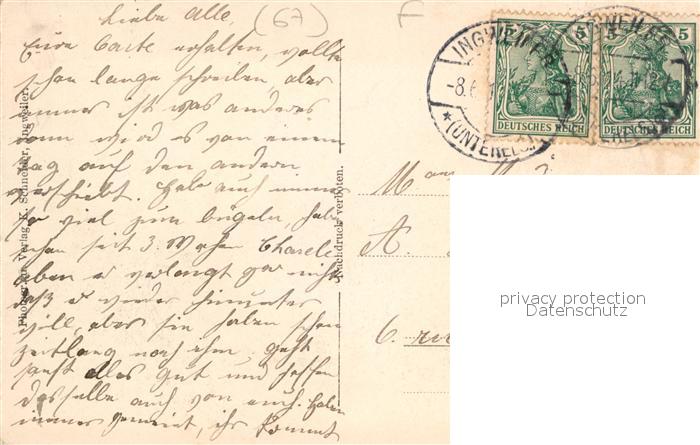 Liebe Alle, (67) F
Eure Carte erhalten, wollte
schon lange schreiben, aber
immer ist was anderes
dann wird es von einem
Tag auf den andern
verschiebt. Habe auch immer
so viel zum bügeln, habe
schon seit 3. Wochen Charele
oben er verlangt gar nicht
daß er wieder hinunter
will, aber sie haben schon
zeitlang nach ihm. geht
sonst alles gut und hoffen
dasselbe auch von euch. Haben
immer gemeint, ihr kommt
Photogr. u. Verlag K. Schneider, Ingweiler.
Nachdruck verboten.
INGWEILER
-8.6
* (UNTERELS.)
5 5
DEUTSCHES REICH DEUTSCHES REICH
M
A.
6. rue
privacy protection
Datenschutz